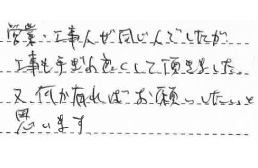 営業・工事人が同じ人でしたが
工事も手際よくして頂きました。
又、何か有ればお願いしたいと
思います